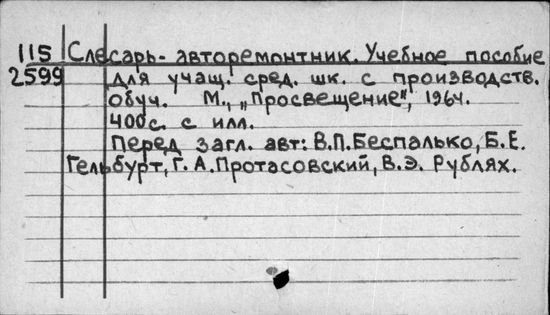 115 Слесарь-авторемонтник. Учебное пособие
2599 для учащ. сред. шк. с производств.
обуч. М., „Просвещение", 1964.
400с. с илл.
Перед загл. авт: В.П.Беспалько, Б.Е.
Гельбурт, Г.А.Протасовский, В.Э. Рублях.